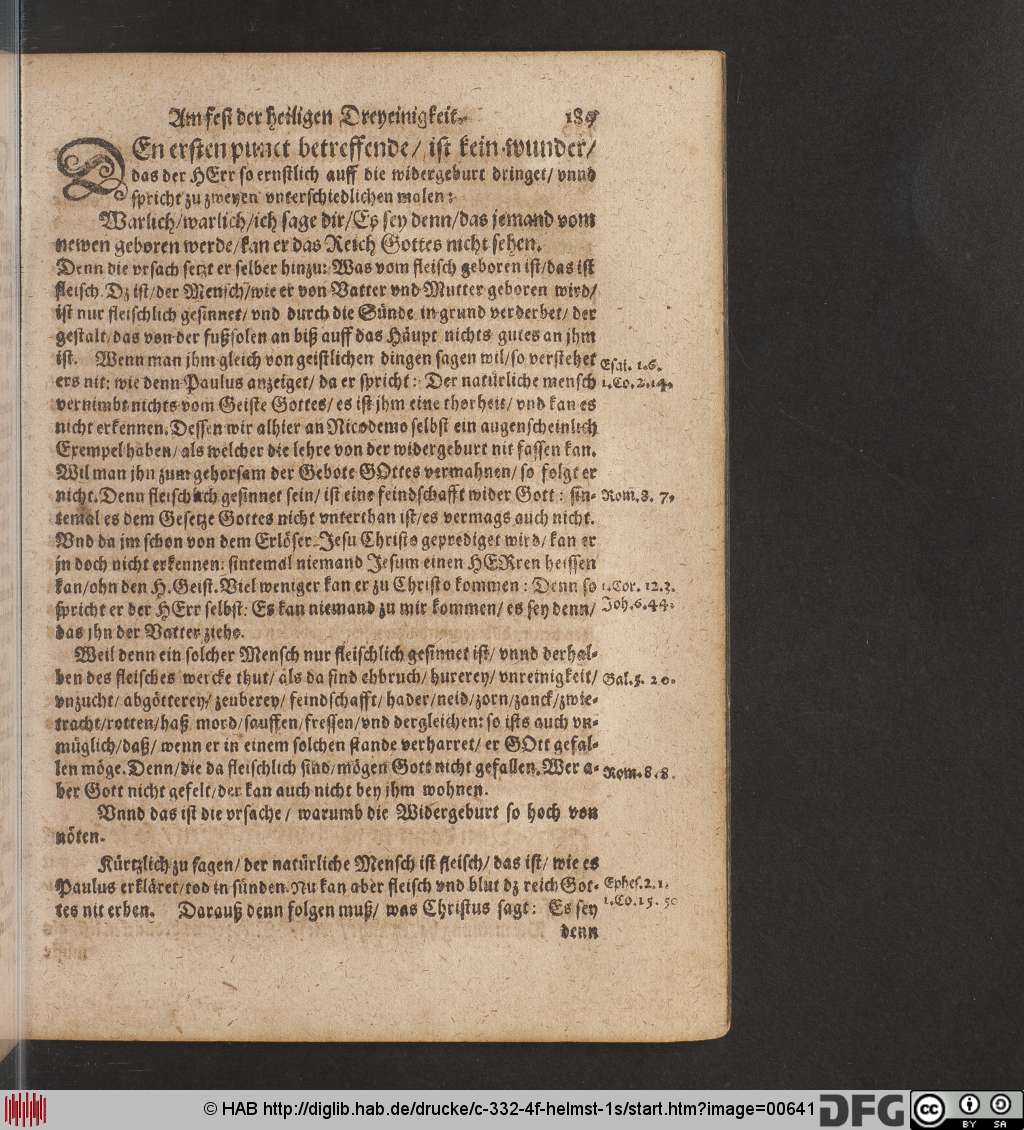 Am fest der heiligen Dreyeinigkeit.
DEn ersten punct betreffende/ ist kein wunder/
das der HErr so ernstlich auff die widergeburt dringet/ vnnd
spricht zu zweyen vnterschiedlichen malen:
Warlich/warlich/ich sage dir/Es sey denn/das jemand vom
newen geboren werde/kan er das Reich Gottes nicht sehen.
Denn die vrsach setzt er selber hinzu: Was vom fleisch geboren ist/das ist
fleisch. Dz ist/der Mensch/wie er von Vatter vnd Mutter geboren wird/
ist nur fleischlich gesinnet/ vnd durch die Sünde in grund verderbet/ der
gestalt/das von der fußsolen an biß auff das Häupt nichts gutes an jhm
ist. Wenn man jhm gleich von geistlichen dingen sagen wil/so verstehet
Esai. 1.6.
ers nit: wie denn Paulus anzeiget/ da er spricht: Der natürliche mensch
1.Co.2.14.
vernimbt nichts vom Geiste Gottes/ es ist jhm eine thorheit/ vnd kan es
nicht erkennen. Dessen wir alhier an Nicodemo selbst ein augenscheinlich
Exempel haben/ als welcher die lehre von der widergeburt nit fassen kan.
Wil man jhn zum gehorsam der Gebott GOttes vermahnen/ so folgt er
nicht. Denn fleischlich gesinnet sein/ ist eine feindschafft wider Gott: sin-
Rom. 8. 7.
temal es dem Gesetze Gottes nicht vnterthan ist/es vermags auch nicht.
Vnd da jm schon von dem Erlöser Jesu Christo geprediget wird/ kan er
jn doch nicht erkennen: sintemal niemand Jesum einen HERren heissen
kan/ohn den H. Geist. Viel weniger kan er zu Christo kommen: Denn so
1.Cor. 12.3.
spricht er der HErr selbst: Es kan niemand zu mir kommen/ es sey denn/
Joh.6.44.
das jhn der Vatter ziehe.
Weil denn ein solcher Mensch nur fleischlich gesinnet ist/ vnnd derhal-
ben des fleisches wercke thut/ als da sind ehbruch/ hurerey/ vnreinigkeit/
Gal.5. 20.
vnzucht/ abgötterey/ zeuberey/ feindschafft/ hader/neid/zorn/zanck/zwie-
tracht/rotten/haß mord/sauffen/fressen/vnd dergleichen: so ists auch vn-
müglich/daß/ wenn er in einem solchen stande verharret/ er GOtt gefal-
len möge. Denn/die da fleischlich sind/mögen Gott nicht gefallen. Wer a-
Rom.8.8.
ber Gott nicht gefelt/der kan auch nicht bey jhm wohnen.
Vnnd das ist die vrsache/ warumb die Widergeburt so hoch von
nöten.
Kürtzlich zu sagen/ der natürliche Mensch ist fleisch/ das ist/ wie es
Paulus erkläret/tod in sünden. Nu kan aber fleisch vnd blut dz reich Got-
Ephes.2.1.
tes nit erben. Darauß denn folgen muß/ was Christus sagt: Es sey
1.Co.15.50
denn
© HAB http://diglib.hab.de/drucke/c-332-4f-helmst-1s/start.htm?image=00641
DFG
cc
BY SA